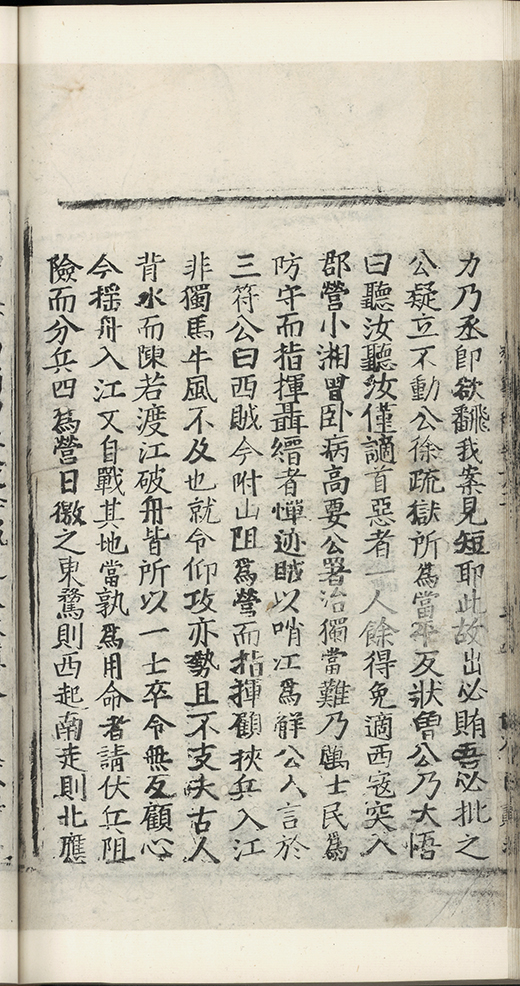 力乃丞即欲飜我案見短耶此故出必賄吾必批之
公凝立不動公徐疏獄所為當平反狀曾公乃大悟
曰聽汝聽汝僅謫首惡者一人餘得免適西寇突入
郡營小湘曾卧病高要公署治獨當難乃勵士民爲
防守而指揮聶縉者憚迹賊以哨江爲解公入言於
三符公曰西賊今附山阻爲營而指揮顧挾兵入江
非獨馬牛風不及也就令仰攻亦勢且不支夫古人
背水而陳若渡江破舟皆所以一士卒令無反顧心
今揺舟入江又自戰其地當孰爲用命者請伏兵阻
險而分兵四爲營日徼之東騖則西起南走則北應